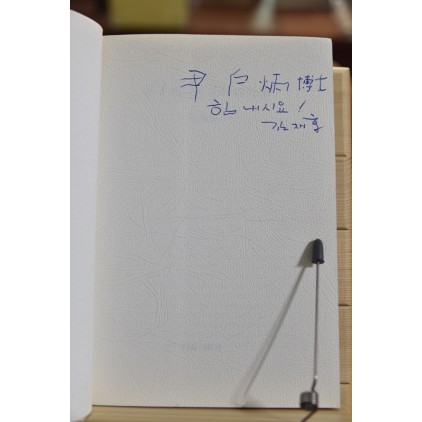 尹 戶 炳 博士
힘내시요!
김재홍